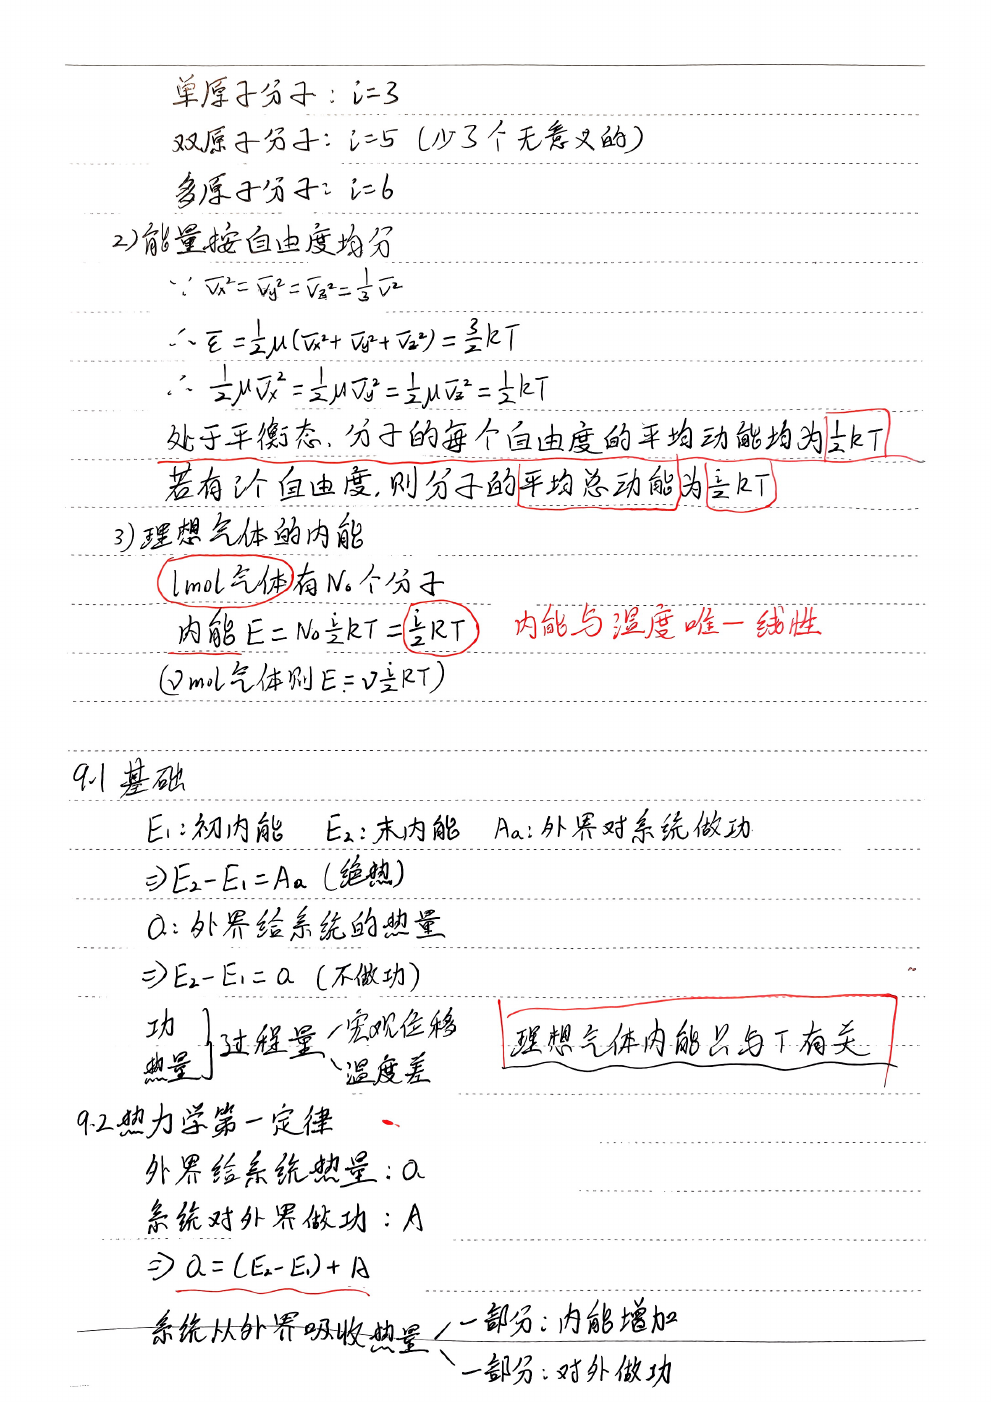 单原子分子: i=3
双原子分子: i=5 (少了个无意义的)
多原子分子: i=6
2)能量按自由度均分
∵ v̄x²=v̄y²=v̄z²=1/3 v̄²
∴ ε̄=1/2μ(v̄x²+v̄y²+v̄z²)=3/2kT
∴ 1/2μv̄x²=1/2μv̄y²=1/2μv̄z²=1/2kT
处于平衡态,分子的每个自由度的平均动能均为1/2kT
若有i个自由度,则分子的平均总动能为i/2kT
3)理想气体的内能
1mol气体有N₀个分子
内能E=N₀i/2kT=i/2RT 内能与温度唯一线性
(νmol气体则E=νi/2RT)
9.1 基础
E₁:初内能 E₂:末内能 Aa:外界对系统做功
⇒E₂-E₁=Aa (绝热)
Q:外界给系统的热量
⇒E₂-E₁=Q (不做功)
功
热量
}过程量
宏观位移
温度差
理想气体内能只与T有关
9.2热力学第一定律
外界给系统热量:Q
系统对外界做功:A
⇒Q=(E₂-E₁)+A
系统从外界吸收热量
一部分:内能增加
一部分:对外做功